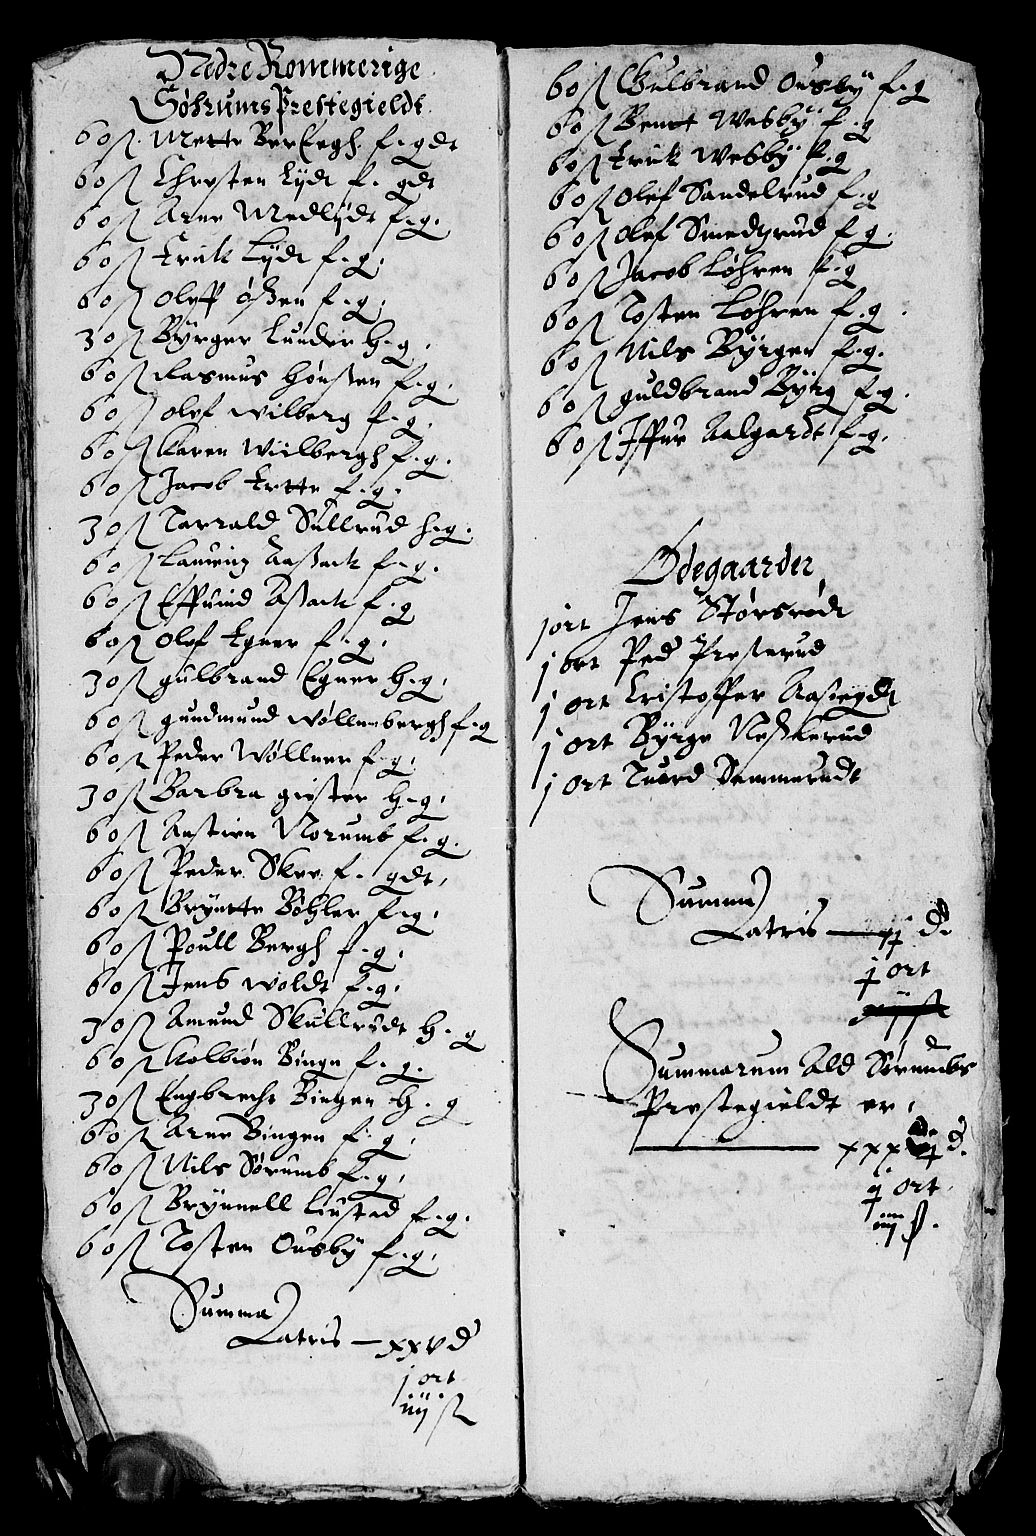 Nedre Rommerige
Søhrums Prestegieldt
60 ß Mette BerEegh f. gdt
60 ß Chresten Lydt f. gdt
60 ß Arne Medlydt f. g.
60 ß Erick Lydt f. g.
60 ß Oleff Ößen f. g.
30 ß Byrger Lunder h. g.
60 ß Rasmus Hönßen f. g.
60 ß Olef Wilberg f. g.
60 ß Karen Wiilbergh f. g.
60 ß Jacob Eette f. g.
30 ß Tarrald Süllrud h. g.
60 ß Laurittz Aaßack f. g.
60 ß Effuind Aßack f. g
60 ß Olef Egner f. g.
30 ß gulbrand Egner h. g.
60 ß gundmund Wøllenbergh f. g
60 ß Peder Wøllner f. g.
30 ß Barbra gister h. g.
60 ß Austien Norumb f. g.
60 ß Peder Skee f. gdt.
60 ß Brynette Böhler f. g.
60 ß Poull Bergh f. g.
60 ß Jens Woldt f. g.
30 ß Amund Skullrudt h. g
60 ß Kolbiön Bingn f. g.
30 ß Engbrecht Bingen h. g
60 ß Arne Bingen f. g.
60 ß Nils Sørumb f. g.
60 ß Brynnell Liustad f. g.
60 ß Tosten Ousby f. g.
Summa
Latris — xxv d
j ort
iiij ß
60 ß Gulbrand Ousby f. g
60 ß Bentt Wesby f. g
60 ß Erick Wesby f. g
60 ß Olef Sandelrud f. g
60 ß Olef Smedzrud f. g.
60 ß Jacob Løhren f. g
60 ß Tosten Løhren f. g.
60 ß Nils Byrgen f. g.
60 ß guldbrand Byrg f. g.
60 ß Iffuer Aalgardt f. g.
Ødegaarder
j ort Jens Störsrødt
j ort Ped Presterud
j ort Cristoffer Aasegdt
j ort Byrge Neskerud
j ort Tuord Sammerudt
Summa
Latris — d.
j ort
Summarum Ald Sørumbs
Prestegieldt er,
xxx d.
j ort
iiij ß.